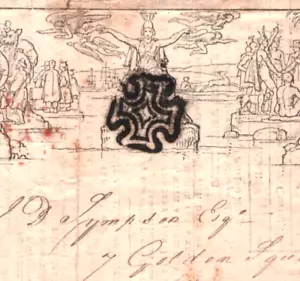 J D Sympson Esqr
7 Golden Squ